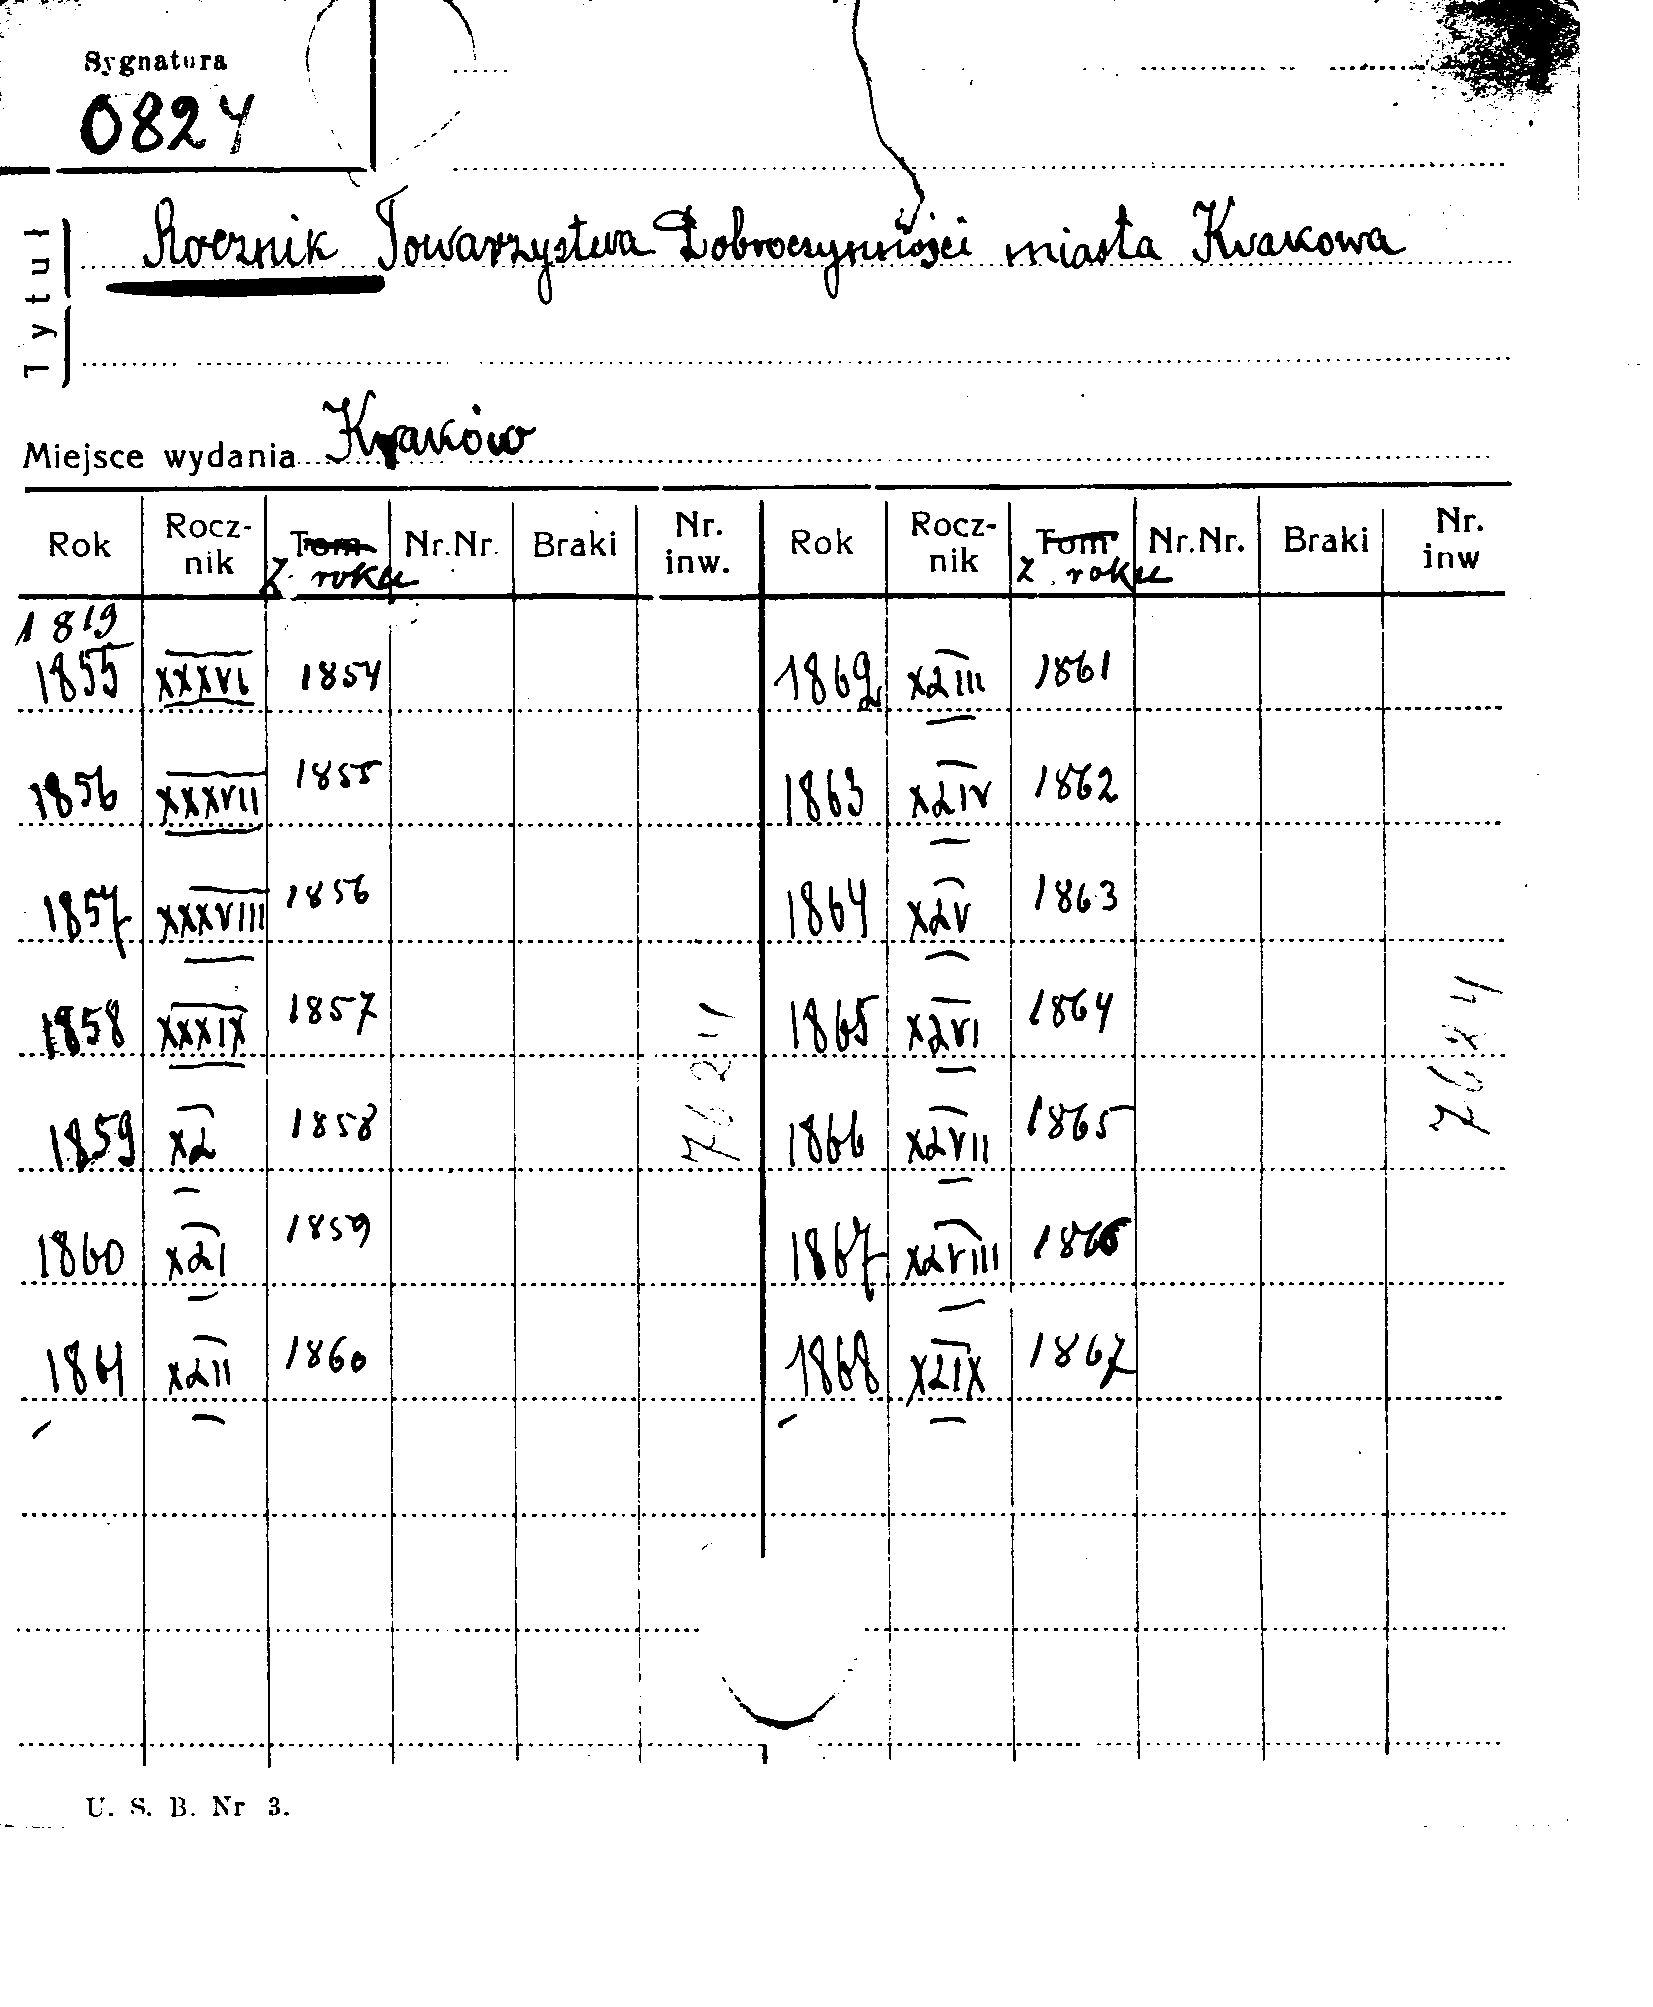 Sygnatura
0824
Tytuł
Rocznik Towarzystwa Dobroczynności miasta Krakowa
Miejsce wydania Kraków
Rok Rocz-nik Tom z roku Nr.Nr. Braki Nr. inw. Rok Rocz-nik Tom z roku Nr.Nr. Braki Nr. inw
1819
1855 XXXVI 1854 1862 XLIII 1861
1856 XXXVII 1855 1863 XLIV 1862
1857 XXXVIII 1856 1864 XLV 1863
1858 XXXIX 1857 1865 XLVI 1864
1859 XL 1858 7624 1866 XLVII 1865 7624
1860 XLI 1859 1867 XLVIII 1866
1861 XLII 1860 1868 XLIX 1867
U. S. B. Nr 3.